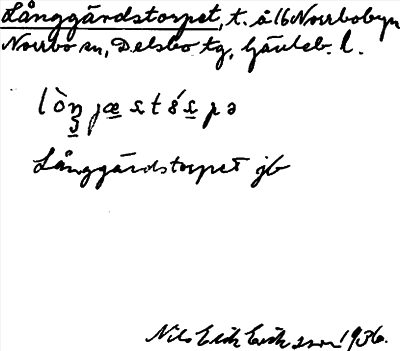 Långgärdstorpet, t. å 16 Norrbobyn
Norrbo sn, Delsbo tg, Gävleb. l.
Långgärdstorpet jb
Nils Erik Eriksson 1936.